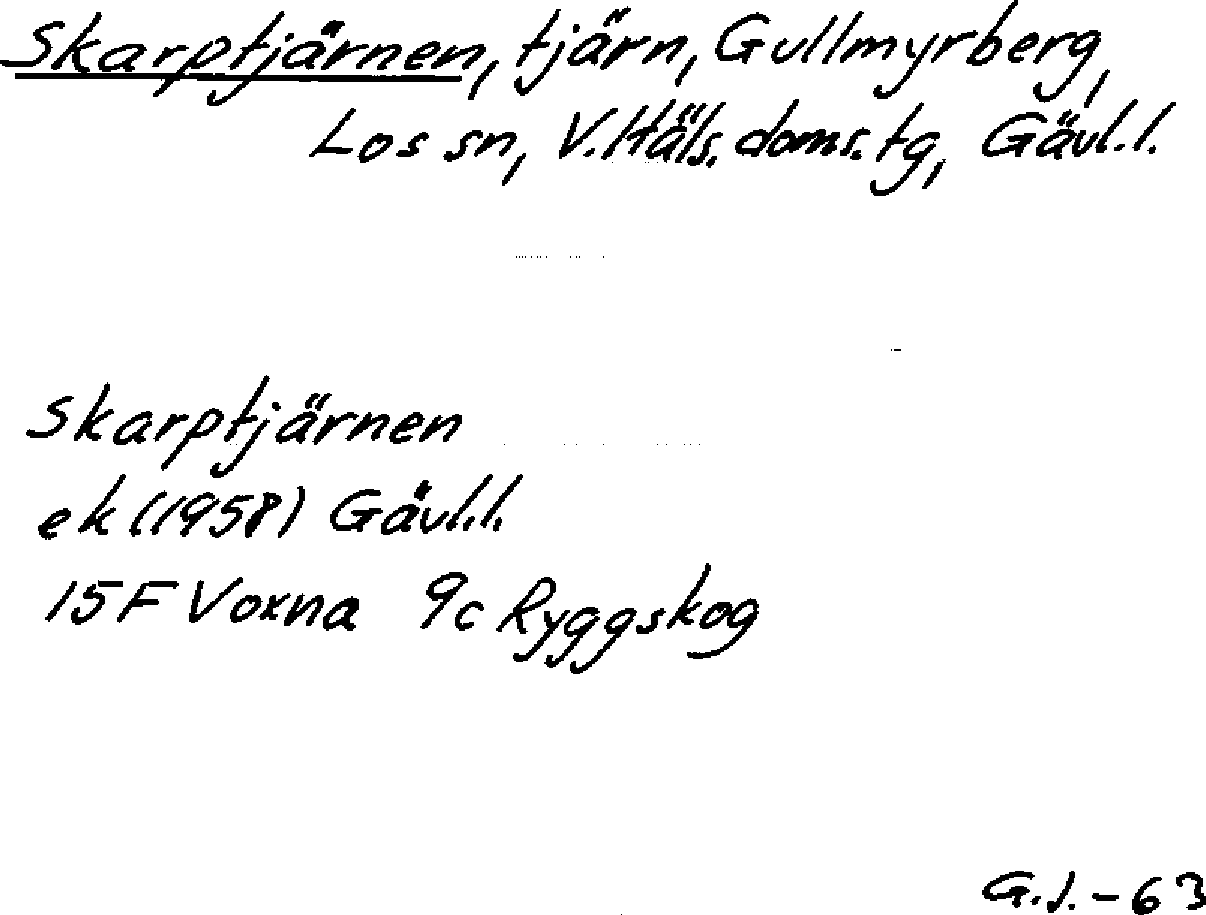 Skarptjärnen, tjärn, Gullmyrberg,
Los sn, V. Häls. doms. tg, Gävl. l.
Skarptjärnen
ek (1958) Gävl. l.
15 F Voxna 9c Ryggskog
G.J. - 63